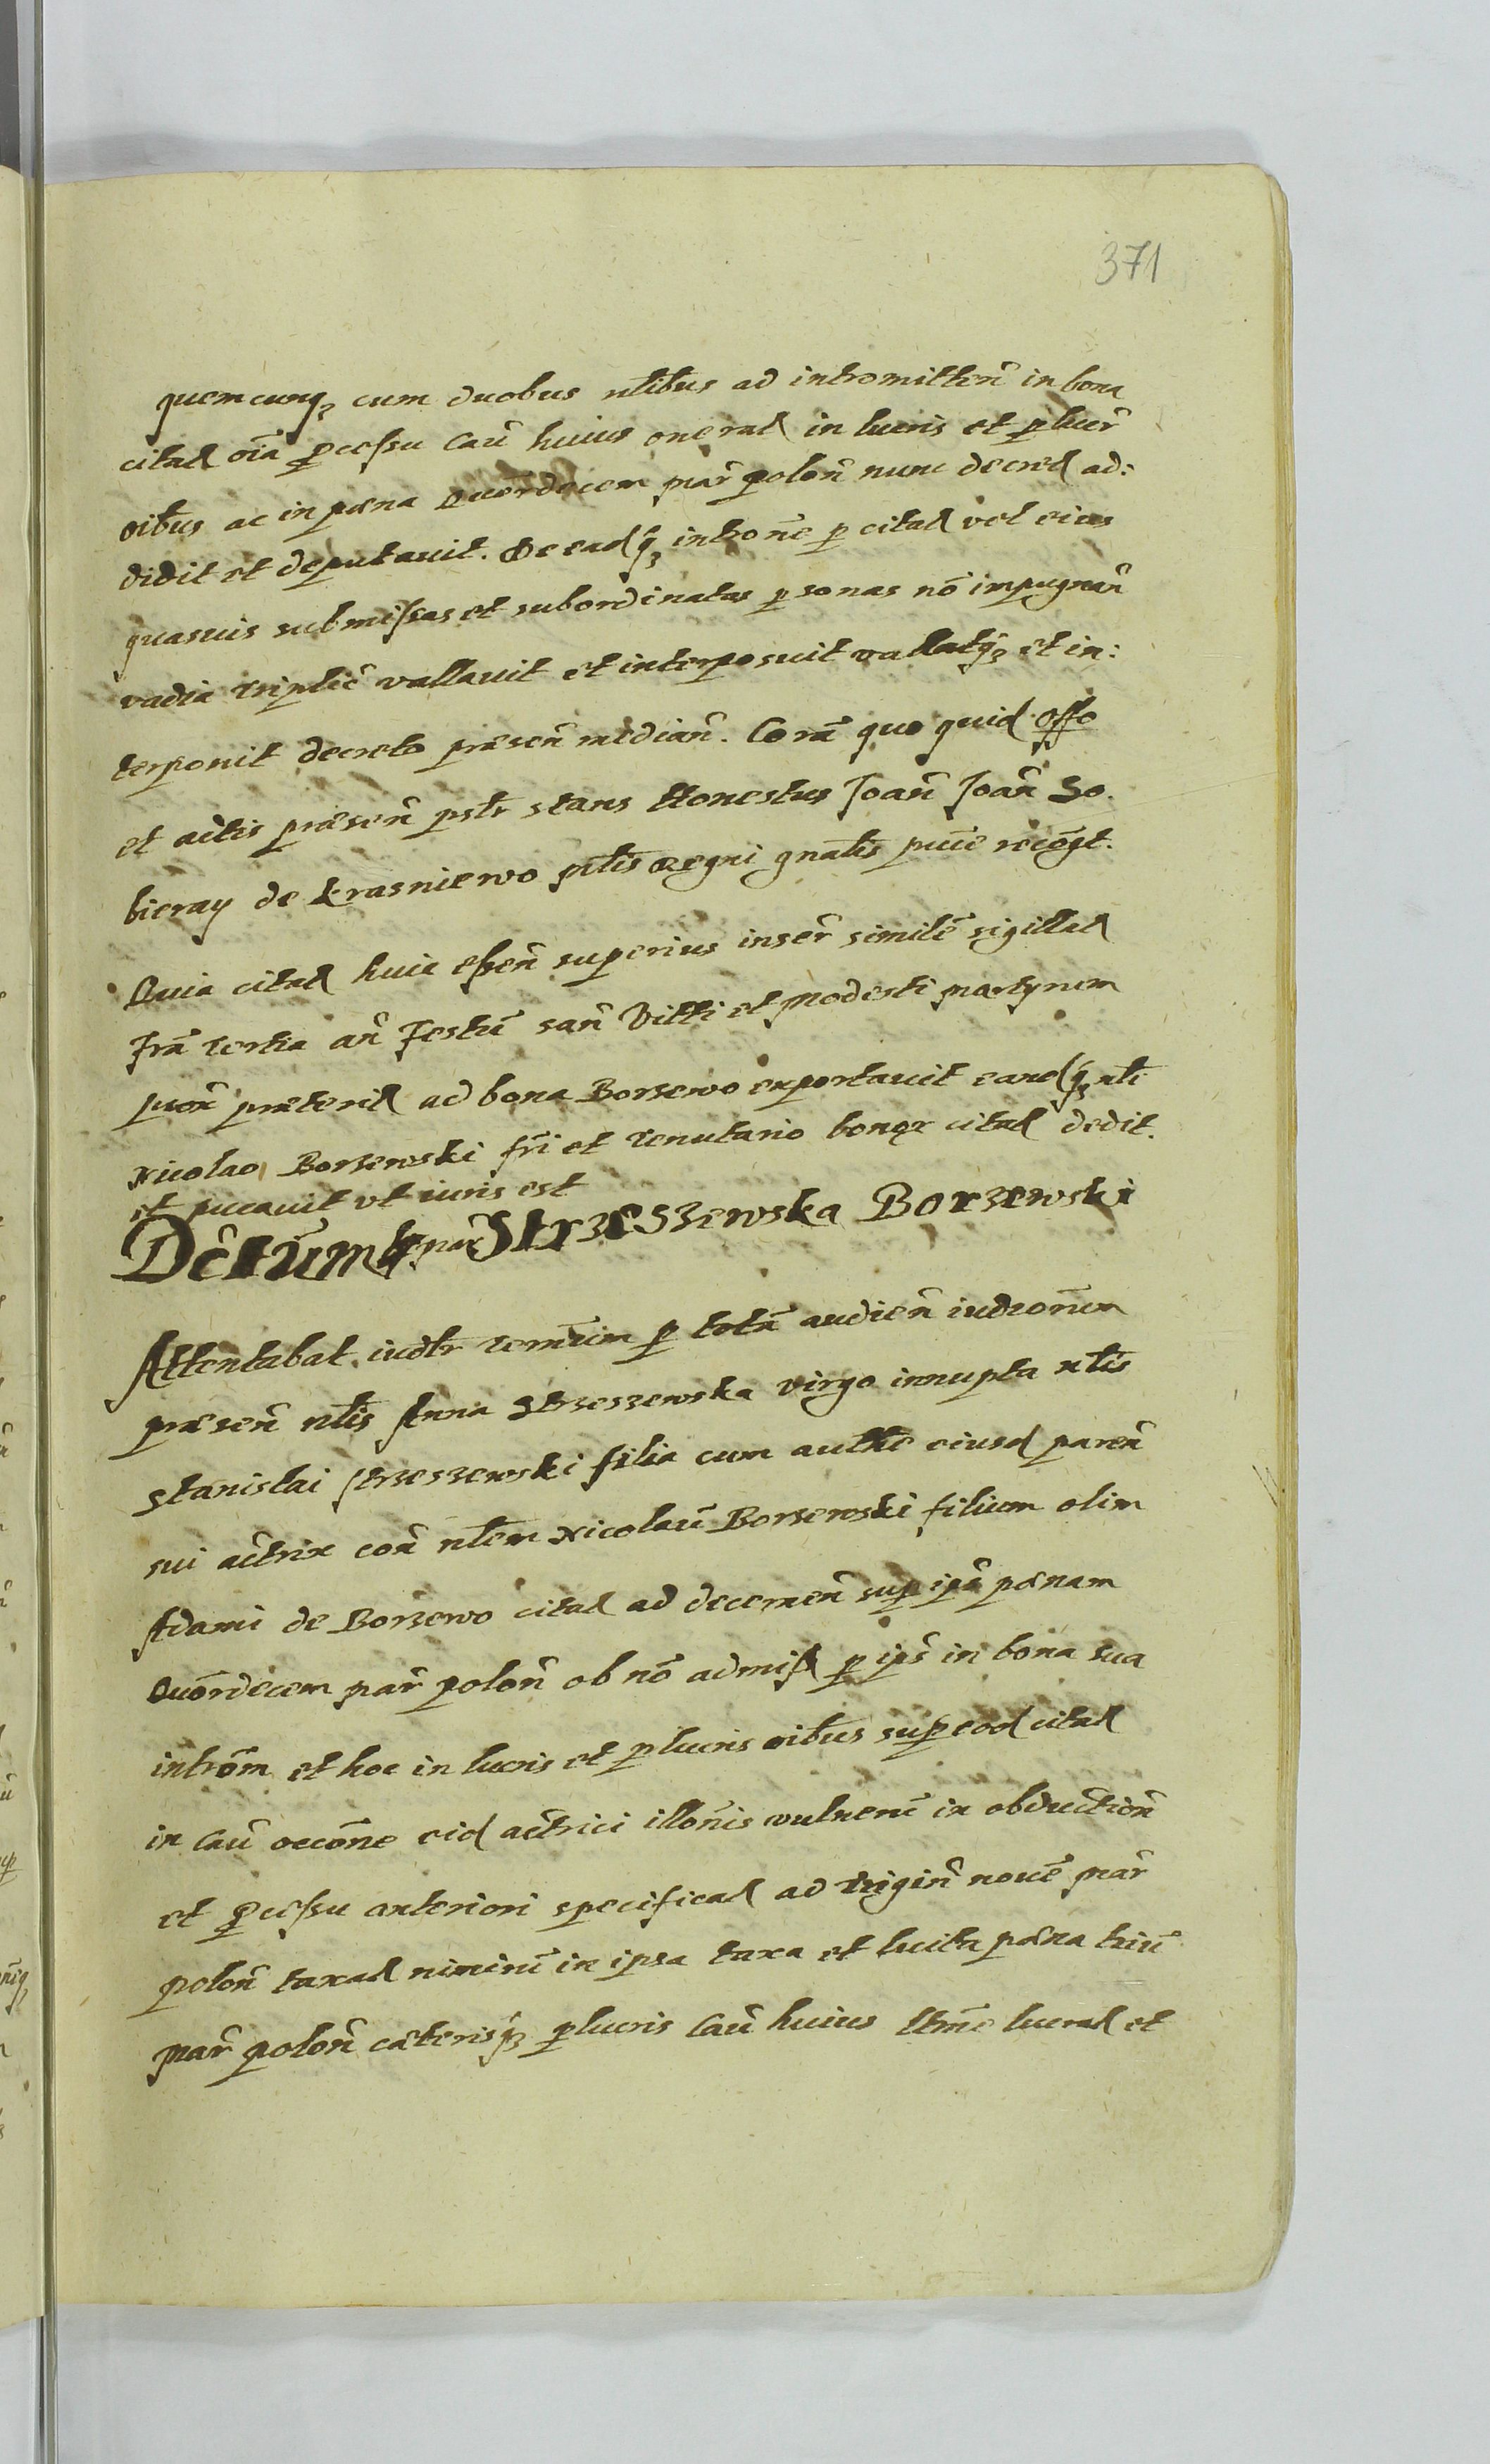 371
quemcunq₃ cum duobus nlibus ad intromitten̄ in bona
citat oīa p̄cessu Cau̅ huius onerat in lucris et plucr̄
oibus ac in pœna Quor̄decem mar̄ polon̄ nunc decret ad:
didit et deputauit. De eadq₃ introne p citat vel eius
quasuis submissas et subordinatas psonas nō impugnan̄
vadia triplic̄ vallauit et interposuit vallatq₃ et in:
terponit decreto præsen̄ median̄. Corā quo quid offo
et actis præsen̄ pstr stans Honestus Joan̄ Joan̄ So.
bieray de Krasniewo mtlis Regni gnalis pme recogt.
Quia citat huic essen̄ superius inser̄ similē sigillat
Frā tertia an̄ Festū san̄ Vitti et Modesti martyrem
prox̄ præterit ad bona Borzewo exportauit eandq₃ nli
Nicolao Borzewski fri et tenutario bonor̄ citat dedit.
et pucauit vt iuris est
Decrum 14 mar̄ Strzeszewska Borzewski
Attentabat iudtr termīum p totā audien̄ iudronem
præsen̄ nlis Anna Strzeszewska virgo innupta nlis
Stanislai Strzeszewski filia cum autthe eiusd paren̄
sui actrix con̄ nlem Nicolaū Borzewski filium olim
Adami de Borzewo citat ad decernen̄ sup ipō pœnam
Quor̄decem mar̄ polon̄ ob nō admiss p ips̄ in bona sua
introm̄ et hoc in lucris et plucris oibus sup eod citat
in Cau̅ occōne eid actrici illonis vulnerū in obduction̄
et p̄cessu anteriori specificat ad trigin̄ nouē mar̄
polon̄ taxat nimirū in ipsa taxa et luita pœna triū
mar̄ polon̄ cæterisq₃ plucris Cau̅ huius ltme lucrat et